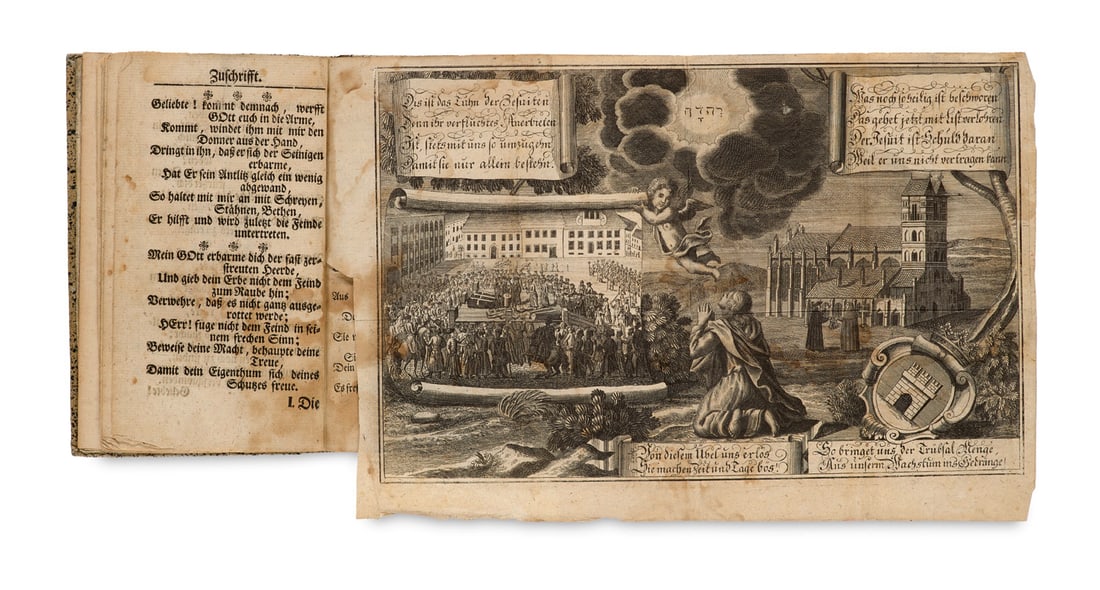 Zuschrifft.
Geliebte! kommt demnach, werfft
GOtt euch in die Arme,
Kommt, windet ihm mit mir den
Donner aus der Hand,
Dringt in ihn, daß er sich der Seinigen
erbarme,
Hat Er sein Antlitz gleich ein wenig
abgewand,
So haltet mit mir an mit Schreyen,
Stähnen, Bethen,
Er hilfft und wird zuletzt die Feinde
untertreten.
Mein GOtt erbarme dich der fast zer-
streuten Heerde,
Und gieb dein Erbe nicht dem Feind
zum Raube hin;
Verwehre, daß es nicht gantz ausge-
rottet werde;
HErr! füge nicht dem Feind in sei-
nem frechen Sinn;
Beweise deine Macht, behaupte deine
Treue,
Damit dein Eigenthum sich deines
Schutzes freue.
I. Die
Aus
Sie
Dein
Es
Dis ist das Tuhn der Jesuiten
Denn ihr verfluchtes
Ist stets mit uns so umzugehn
Damit sie nur allein bestehn.
Was noch so heilig ist beschworen
Das gehet jetzt mit List verlohren
Der Jesuit ist Schuld daran
Weil er uns nicht vertragen kann
Von diesem Übel uns erlös
Die machen Zeit und Tage bös!
So bringet uns der Trübsal Menge,
Aus unserm Wachstum ins Gedränge!